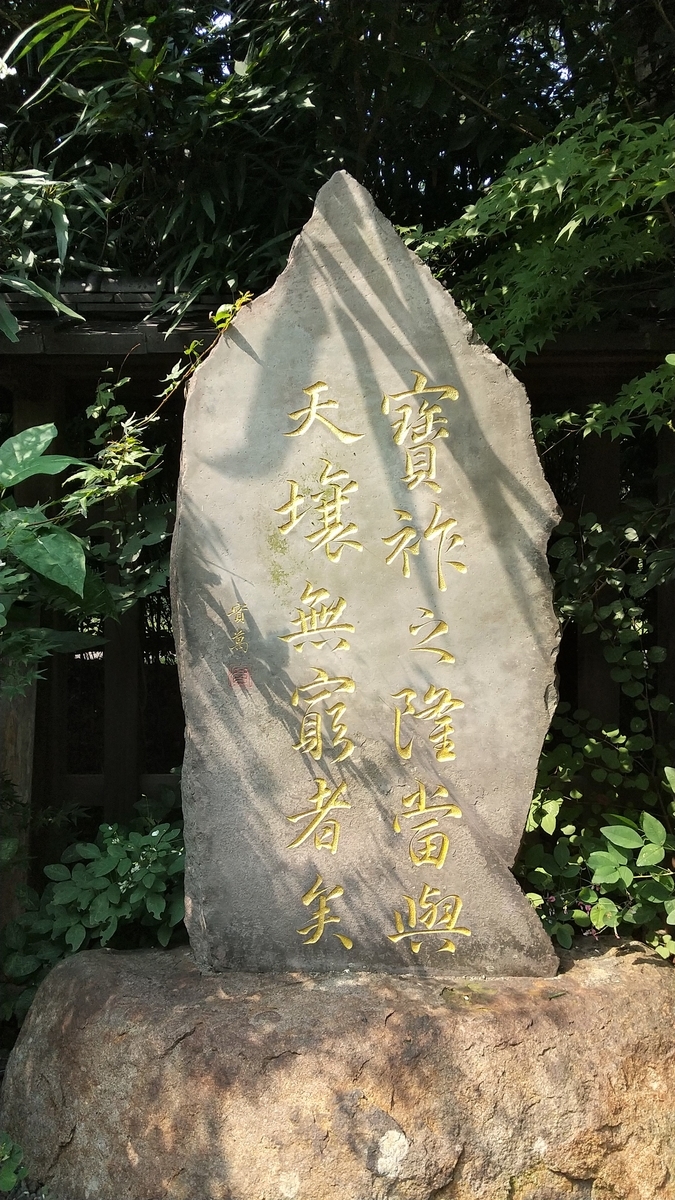 寶祚之隆當與
天壤無窮者矣
實萬